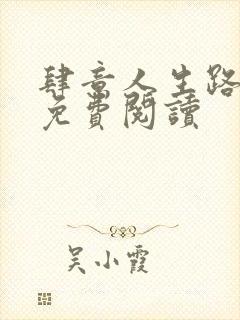 肆意人生路
免費閱讀
吴小霞